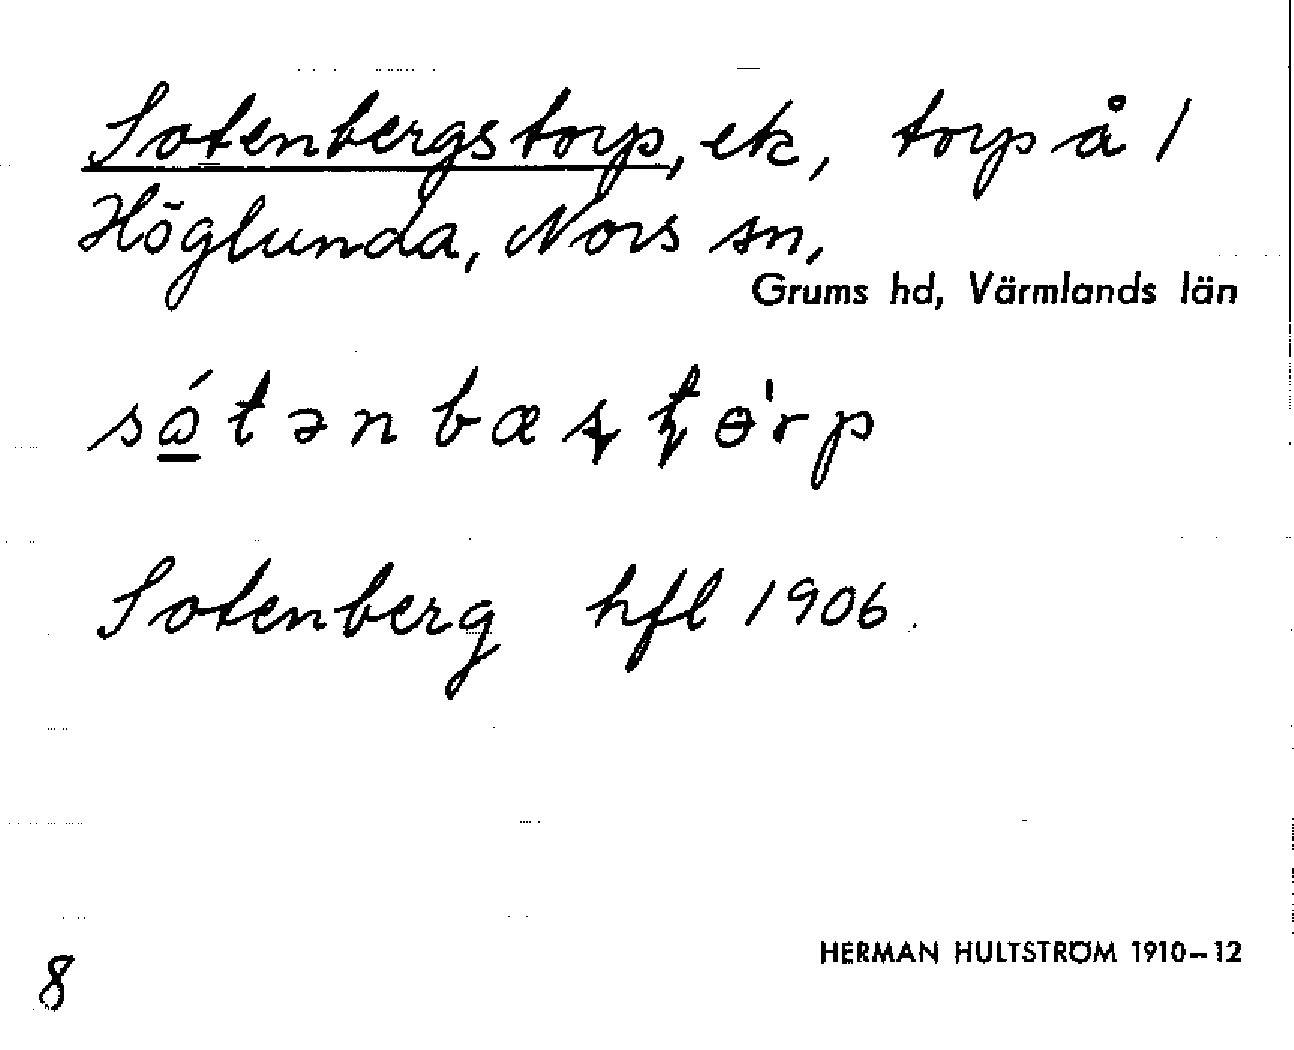 Sotenbergstorp, ek, torp å 1
Höglunda, Nors sn,
Grums hd, Värmlands län
Sotenberg hfl 1906.
8
HERMAN HULTSTRÖM 1910–12